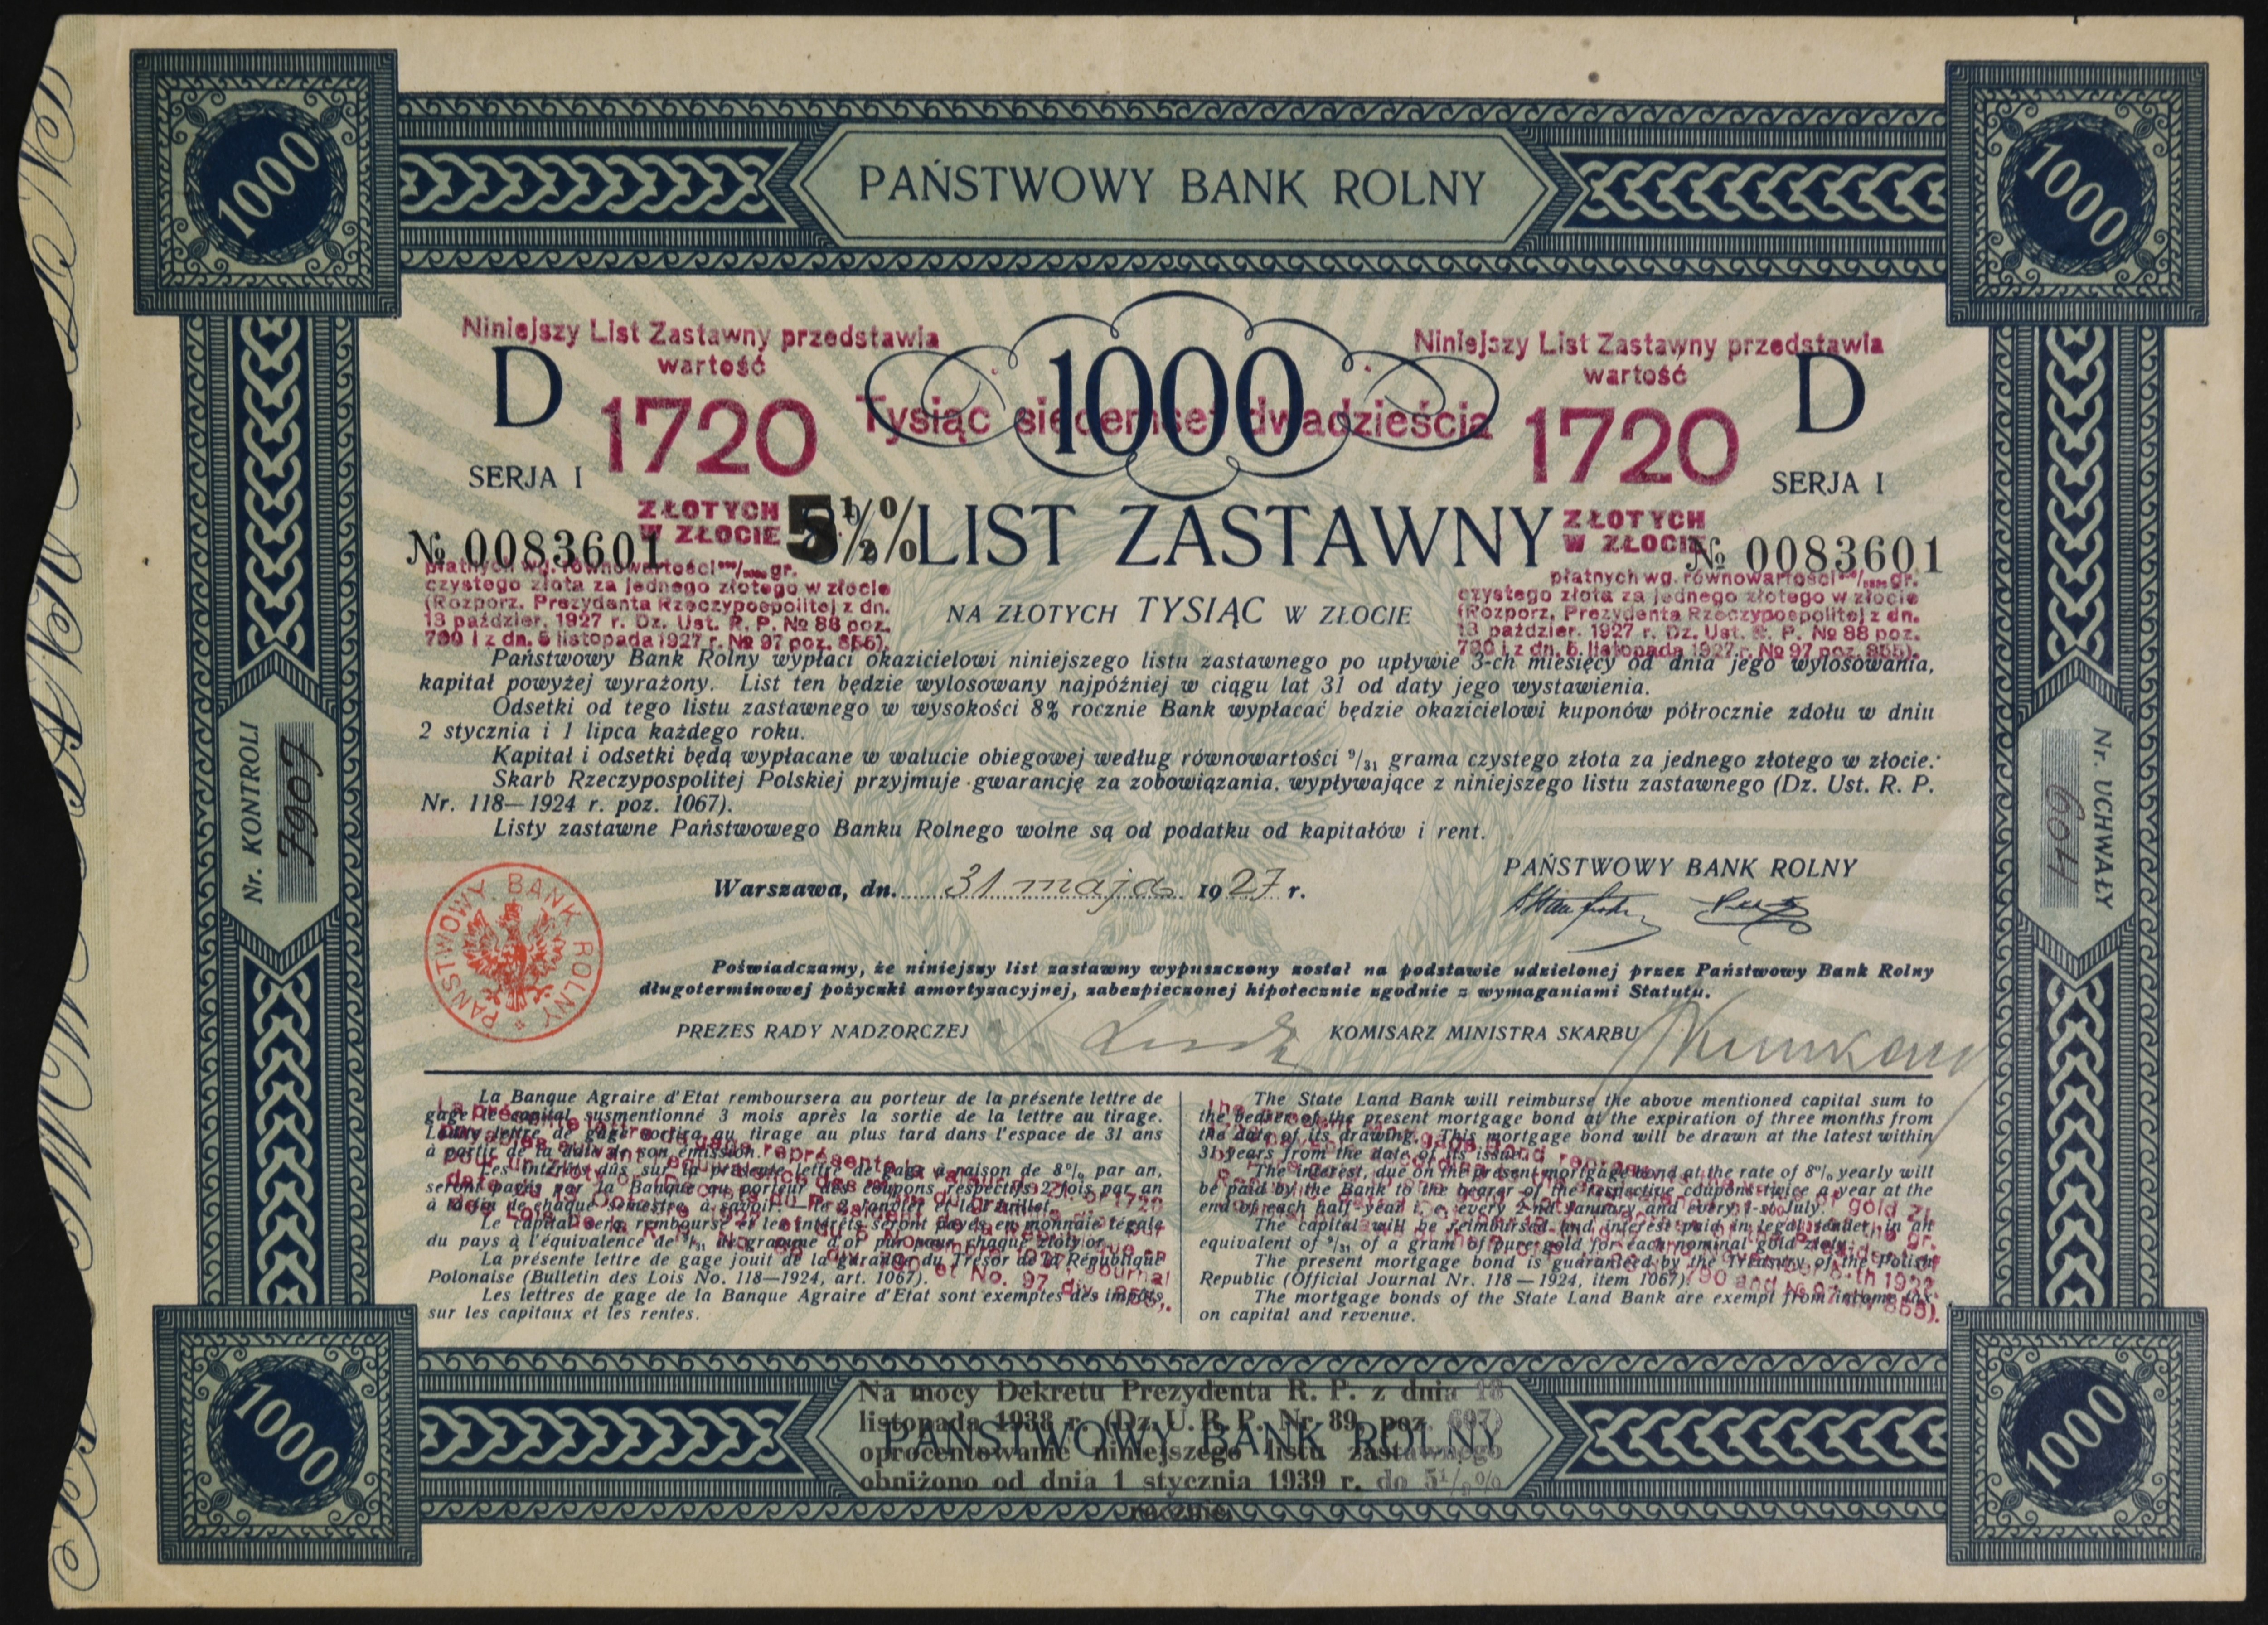 1000
PAŃSTWOWY BANK ROLNY
1000
Niniejszy List Zastawny przedstawia
wartość
Niniejszy List Zastawny przedstawia
wartość
D
1720
Tysiąc siedemset dwadzieścia
1000
1720
D
SERJA I
SERJA I
ZŁOTYCH
W ZŁOCIE
5½%
LIST ZASTAWNY
ZŁOTYCH
W ZŁOCIE
№ 0083601
№ 0083601
płatnych wg. równowartości gr.
czystego złota za jednego złotego w złocie
(Rozporz. Prezydenta Rzeczypospolitej z dn.
13 paździer. 1927 r. Dz. Ust. R. P. № 88 poz.
790 i z dn. 5 listopada 1927 r. № 97 poz. 855).
płatnych wg. równowartości gr.
czystego złota za jednego złotego w złocie
(Rozporz. Prezydenta Rzeczypospolitej z dn.
13 paździer. 1927 r. Dz. Ust. R. P. № 88 poz.
790 i z dn. 5 listopada 1927 r. № 97 poz. 855).
NA ZŁOTYCH TYSIĄC W ZŁOCIE
Państwowy Bank Rolny wypłaci okazicielowi niniejszego listu zastawnego po upływie 3-ch miesięcy od dnia jego wylosowania,
kapitał powyżej wyrażony. List ten będzie wylosowany najpóźniej w ciągu lat 31 od daty jego wystawienia.
Odsetki od tego listu zastawnego w wysokości 8% rocznie Bank wypłacać będzie okazicielowi kuponów półrocznie zdołu w dniu
2 stycznia i 1 lipca każdego roku.
Kapitał i odsetki będą wypłacane w walucie obiegowej według równowartości 9/31 grama czystego złota za jednego złotego w złocie.
Skarb Rzeczypospolitej Polskiej przyjmuje gwarancję za zobowiązania, wypływające z niniejszego listu zastawnego (Dz. Ust. R. P.
Nr. 118—1924 r. poz. 1067).
Listy zastawne Państwowego Banku Rolnego wolne są od podatku od kapitałów i rent.
Nr. KONTROLI
7907
Nr. UCHWAŁY
1409
PAŃSTWOWY BANK ROLNY
Warszawa, dn. 31 maja 1927 r.
PAŃSTWOWY BANK ROLNY
Poświadczamy, że niniejszy list zastawny wypuszczony został na podstawie udzielonej przez Państwowy Bank Rolny
długoterminowej pożyczki amortyzacyjnej, zabezpieczonej hipotecznie zgodnie z wymaganiami Statutu.
PREZES RADY NADZORCZEJ
KOMISARZ MINISTRA SKARBU
La Banque Agraire d'Etat remboursera au porteur de la présente lettre de
gage le capital susmentionné 3 mois après la sortie de la lettre au tirage.
Ladite lettre de gage sortira au tirage au plus tard dans l'espace de 31 ans
à partir de la date de son émission.
Les intérêts dûs sur la présente lettre de gage à raison de 8% par an,
seront payés par la Banque au porteur des coupons respectifs 2 fois par an
à la fin de chaque semestre, à savoir: le 2 janvier et le 1 juillet.
Le capital sera remboursé et les intérêts seront payés en monnaie légale
du pays à l'équivalence de 9/31 de gramme d'or pur pour chaque zloty or.
La présente lettre de gage jouit de la garantie du Trésor de la République
Polonaise (Bulletin des Lois No. 118—1924, art. 1067).
Les lettres de gage de la Banque Agraire d'Etat sont exemptes des impôts
sur les capitaux et les rentes.
The State Land Bank will reimburse the above mentioned capital sum to
the bearer of the present mortgage bond at the expiration of three months from
the date of its drawing. This mortgage bond will be drawn at the latest within
31 years from the date of its issue.
The interest, due on the present mortgage bond at the rate of 8% yearly will
be paid by the Bank to the bearer of the respective coupons twice a year at the
end of each half-year i. e. every 2-nd January and every 1-st July.
The capital will be reimbursed and interest paid in legal tender in an
equivalent of 9/31 of a gram of pure gold for each nominal gold zloty.
The present mortgage bond is guaranteed by the Treasury of the Polish
Republic (Official Journal Nr. 118—1924, item 1067).
The mortgage bonds of the State Land Bank are exempt from income tax
on capital and revenue.
1000
Na mocy Dekretu Prezydenta R. P. z dnia 18
listopada 1938 r. (Dz. U. R. P. Nr. 89, poz. 607)
PAŃSTWOWY BANK ROLNY
oprocentowanie niniejszego listu zastawnego
obniżono od dnia 1 stycznia 1939 r. do 5½%
rocznie.
1000